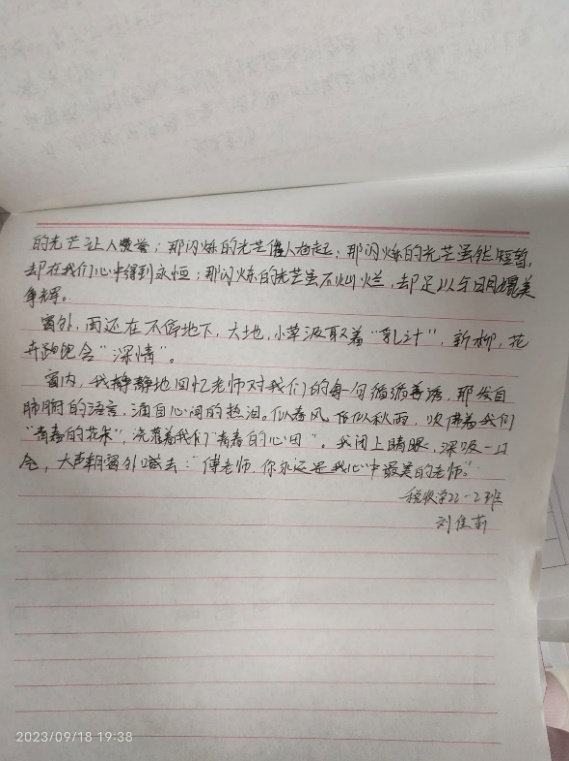 的光芒让人赞誉；那闪烁的光芒催人奋起；那闪烁的光芒虽然短暂，
却在我们心中得到永恒；那闪烁的光芒虽不灿烂，却足以与日月媲美
争辉。
窗外，雨还在不停地下，大地，小草汲取着“乳汁”，新柳，花
卉饱含“深情”。
窗内，我静静地回忆老师对我们的每一句循循善诱，那发自
肺腑的语言，涌自心阔的热泪，似春风，恰似秋雨，吹佛着我们
“青春的花朵”，浇灌着我们“青春的心田”。我闭上睛眼，深吸一口
气，大声朝窗外喊去：“傅老师，你永远是我心中最美的老师。”
税收学22-2班
刘佳莉
2023/09/18 19:38